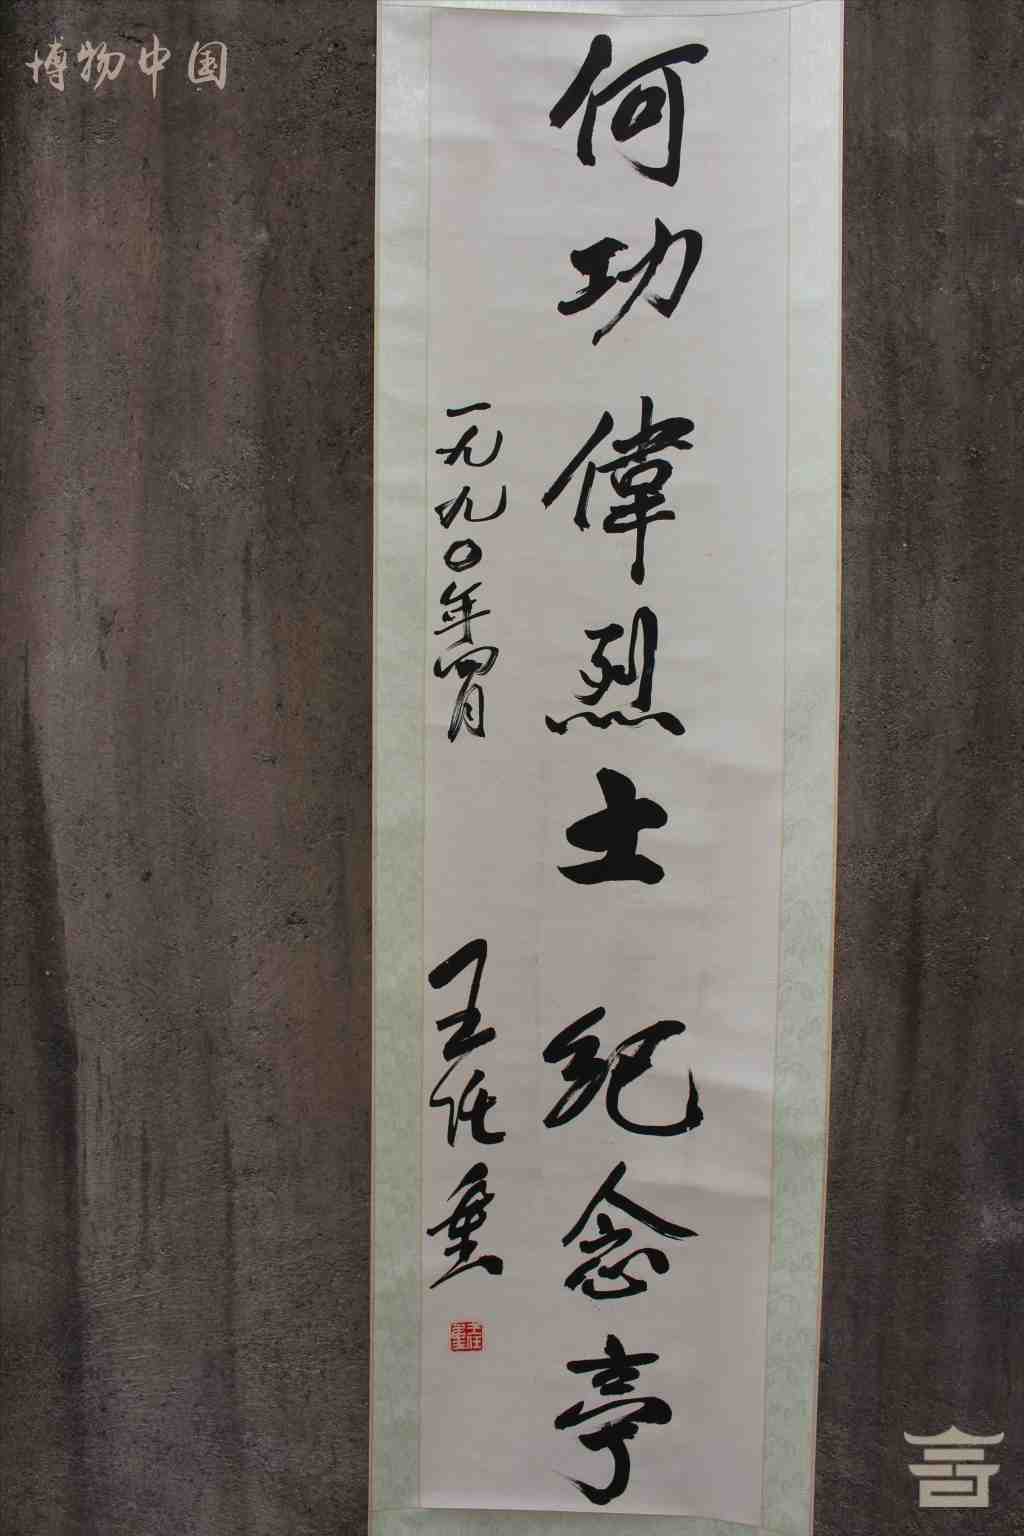 博物中国
何功偉烈士纪念亭
一九九〇年四月
王任重
王任重